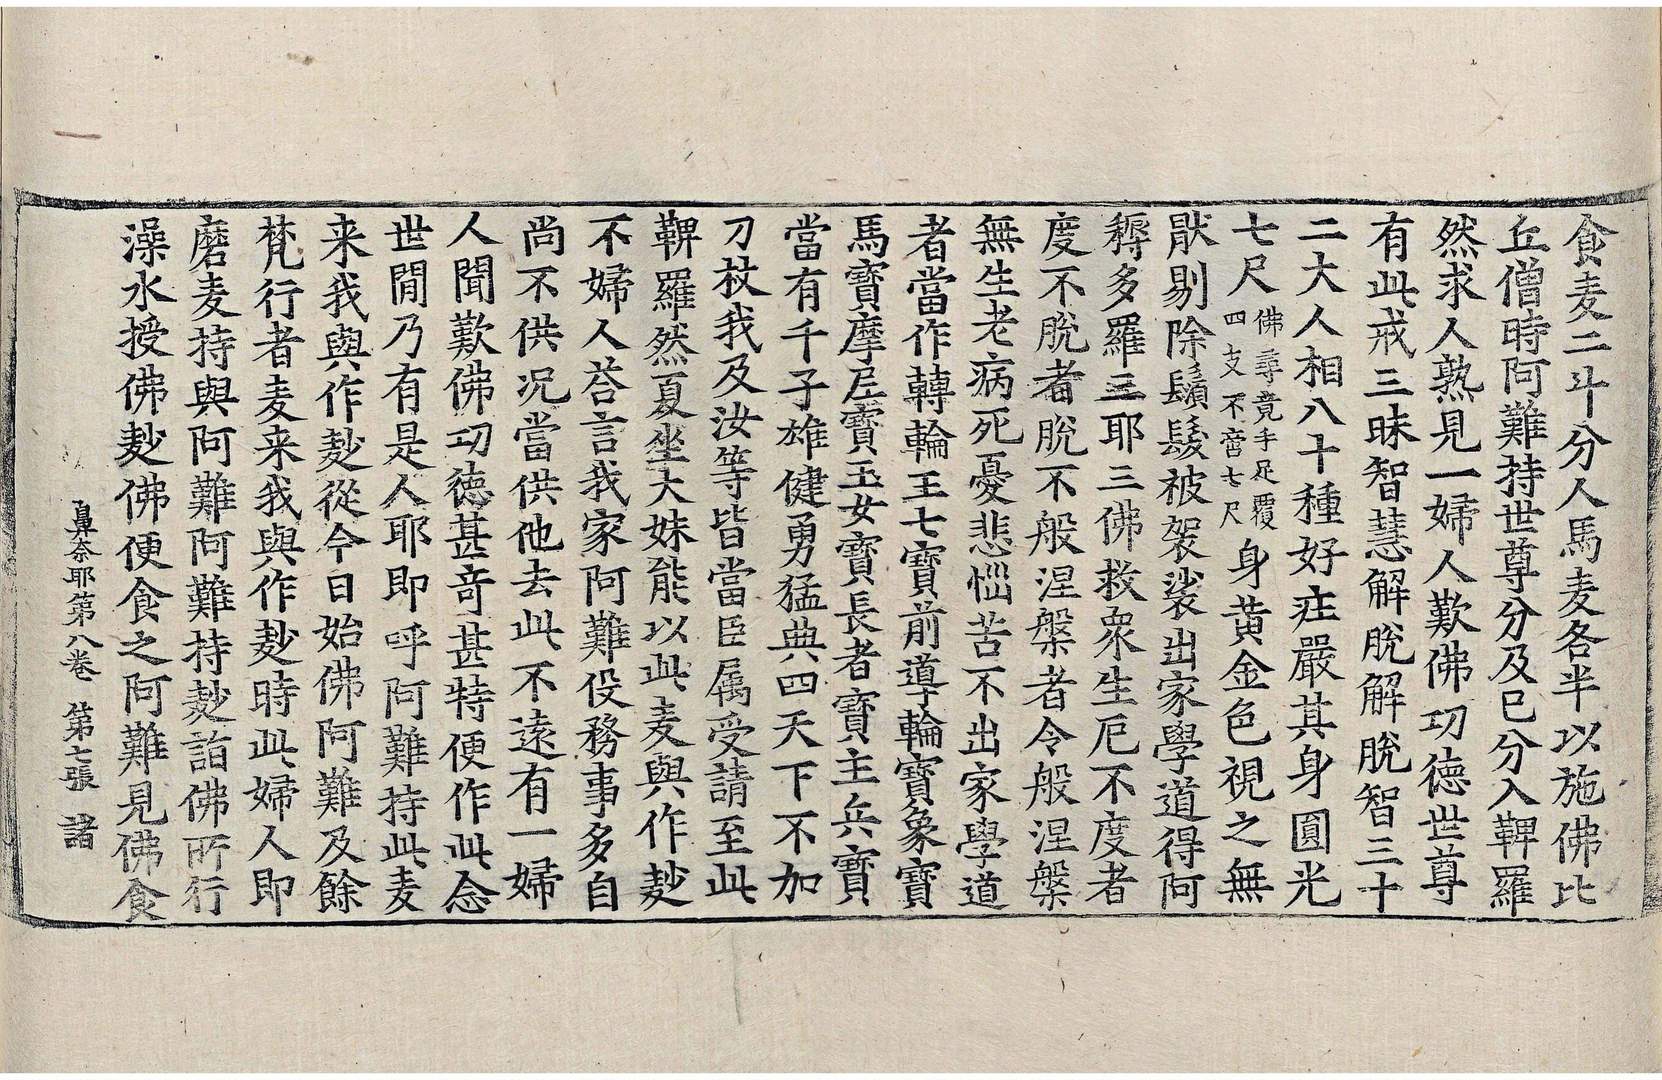 食麦二斗分人馬麦各半以施佛比
丘僧時阿難持世尊分及巳分入鞞羅
然求人熟見一婦人歎佛功德世尊
有此戒三昧智慧解脫解脫智三十
二大人相八十種好疰嚴其身圓光
七尺佛尋竟手足覆四支不啻七尺身黃金色視之無
猒剔除鬚髮被袈裟出家學道得阿
耨多羅三耶三佛救衆生厄不度者
度不脫者脫不般涅槃者令般涅槃
無生老病死憂悲惱苦不出家學道
者當作轉輪王七寶前導輪寶象寶
馬寶摩尼寶玉女寶長者寶主兵寶
當有千子雄健勇猛典四天下不加
刀杖我及汝等皆當臣属受請至此
鞞羅然夏坐大妹能以此麦與作麨
不婦人荅言我家阿難役務事多自
尚不供况當供他去此不遠有一婦
人聞歎佛功德甚奇甚特便作此念
世間乃有是人耶即呼阿難持此麦
来我與作麨從今日始佛阿難及餘
梵行者麦来我與作麨時此婦人即
磨麦持與阿難阿難持麨詣佛所行
澡水授佛麨佛便食之阿難見佛食
鼻奈耶第八卷 第七張 諸